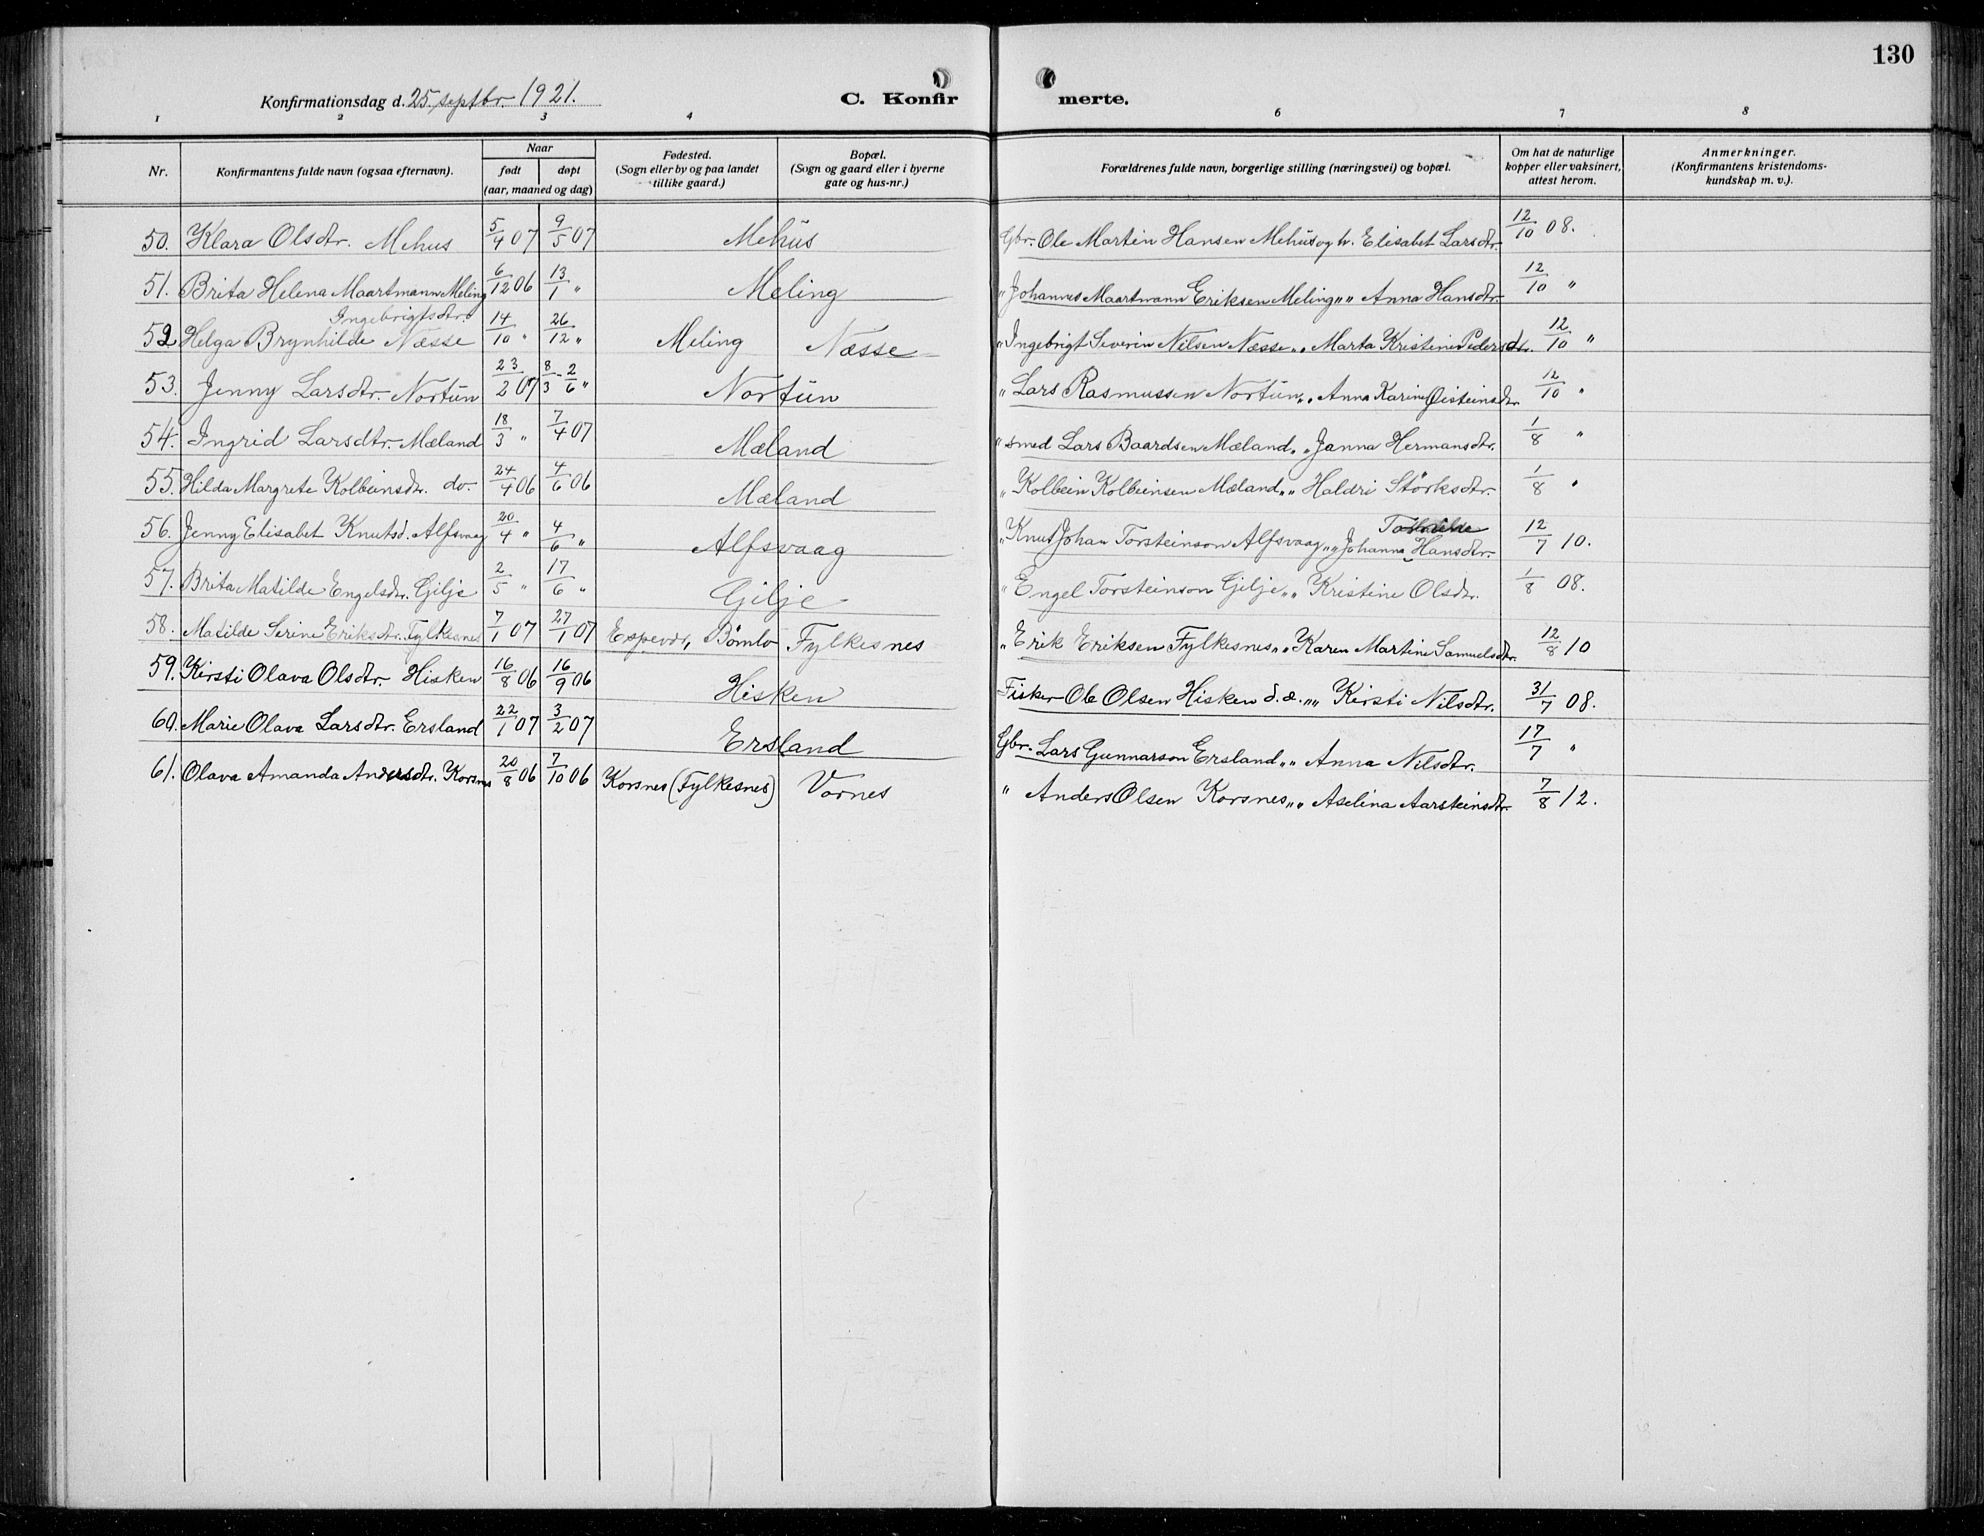 130
Konfirmationsdag d. 25. septbr. 1921.
C. Konfir merte.
1 2 3 4 6 7 8
Nr. Konfirmantens fulde navn (ogsaa efternavn). Naar født døpt (aar, maaned og dag) Fødested. (Sogn eller by og paa landet tillike gaard.) Bopæl. (Sogn og gaard eller i byerne gate og hus-nr.) Forældrenes fulde navn, borgerlige stilling (næringsvei) og bopæl. Om hat de naturlige kopper eller vaksinert, attest herom. Anmerkninger. (Konfirmantens kristendoms-kundskap m. v.).
50. Klara Olsdtr. Mehus 5/4 07 9/5 07 Mehus Gbr. Ole Martin Hansen Mehus og h. Elisabet Larsdtr. 12/10 08.
51. Brita Helena Maartmann Meling 6/12 06 13/1 " Meling " Johannes Maartmann Eriksen Meling " " Anna Hansdtr. 12/10 "
Ingebrigtsdtr.
52. Helga Brynhilde Næsse 14/10 " 26/12 " Meling Næsse " Ingebrigt Severin Nilsen Næsse " " Marta Kristine Pedersdtr. 12/10 "
53. Jenny Larsdtr. Nortun 23/2 07 8/3 - 2/6 " Nortun " Lars Rasmussen Nortun " " Anna Karine Øisteinsdtr. 12/10 "
54. Ingrid Larsdtr. Mæland 18/3 " 7/4 07 Mæland " smed Lars Baardsen Mæland " " Janna Hermansdtr. 1/8 "
55. Hilda Margrete Kolbeinsdtr. do. 24/4 06 4/6 06 Mæland " Kolbein Kolbeinsen Mæland " " Haldri Størksdtr. 1/8 "
56. Jenny Elisabet Knutsd. Alfsvaag 20/4 " 4/6 " Alfsvaag " Knut Johan Torsteinson Alfsvaag " " Johanna Hansdtr. 12/7 10.
57. Brita Matilde Engelsdtr. Gilje 2/5 " 17/6 " Gilje " Engel Torsteinson Gilje " " Kristine Olsdtr. 1/8 08.
58. Matilde Serine Eriksdtr. Fylkesnes 7/1 07 27/1 07 Espevær, Bømlo Fylkesnes " Erik Eriksen Fylkesnes " " Karen Martine Samuelsdtr. 12/8 10
59. Kirsti Olava Olsdtr. Hisken 16/8 06 16/9 06 Hisken Fisker Ole Olsen Hisken d. æ. " " Kirsti Nilsdtr. 31/7 08.
60. Marie Olava Larsdtr. Ersland 22/1 07 3/2 07 Ersland Gbr. Lars Gunnarson Ersland " " Anna Nilsdtr. 17/7 "
61. Olava Amanda Andersdtr. Korsnes 20/8 06 7/10 06 Korsnes (Fylkesnes) Vornes " Anders Olsen Korsnes " " Aselina Aarsteinsdtr. 7/8 12.